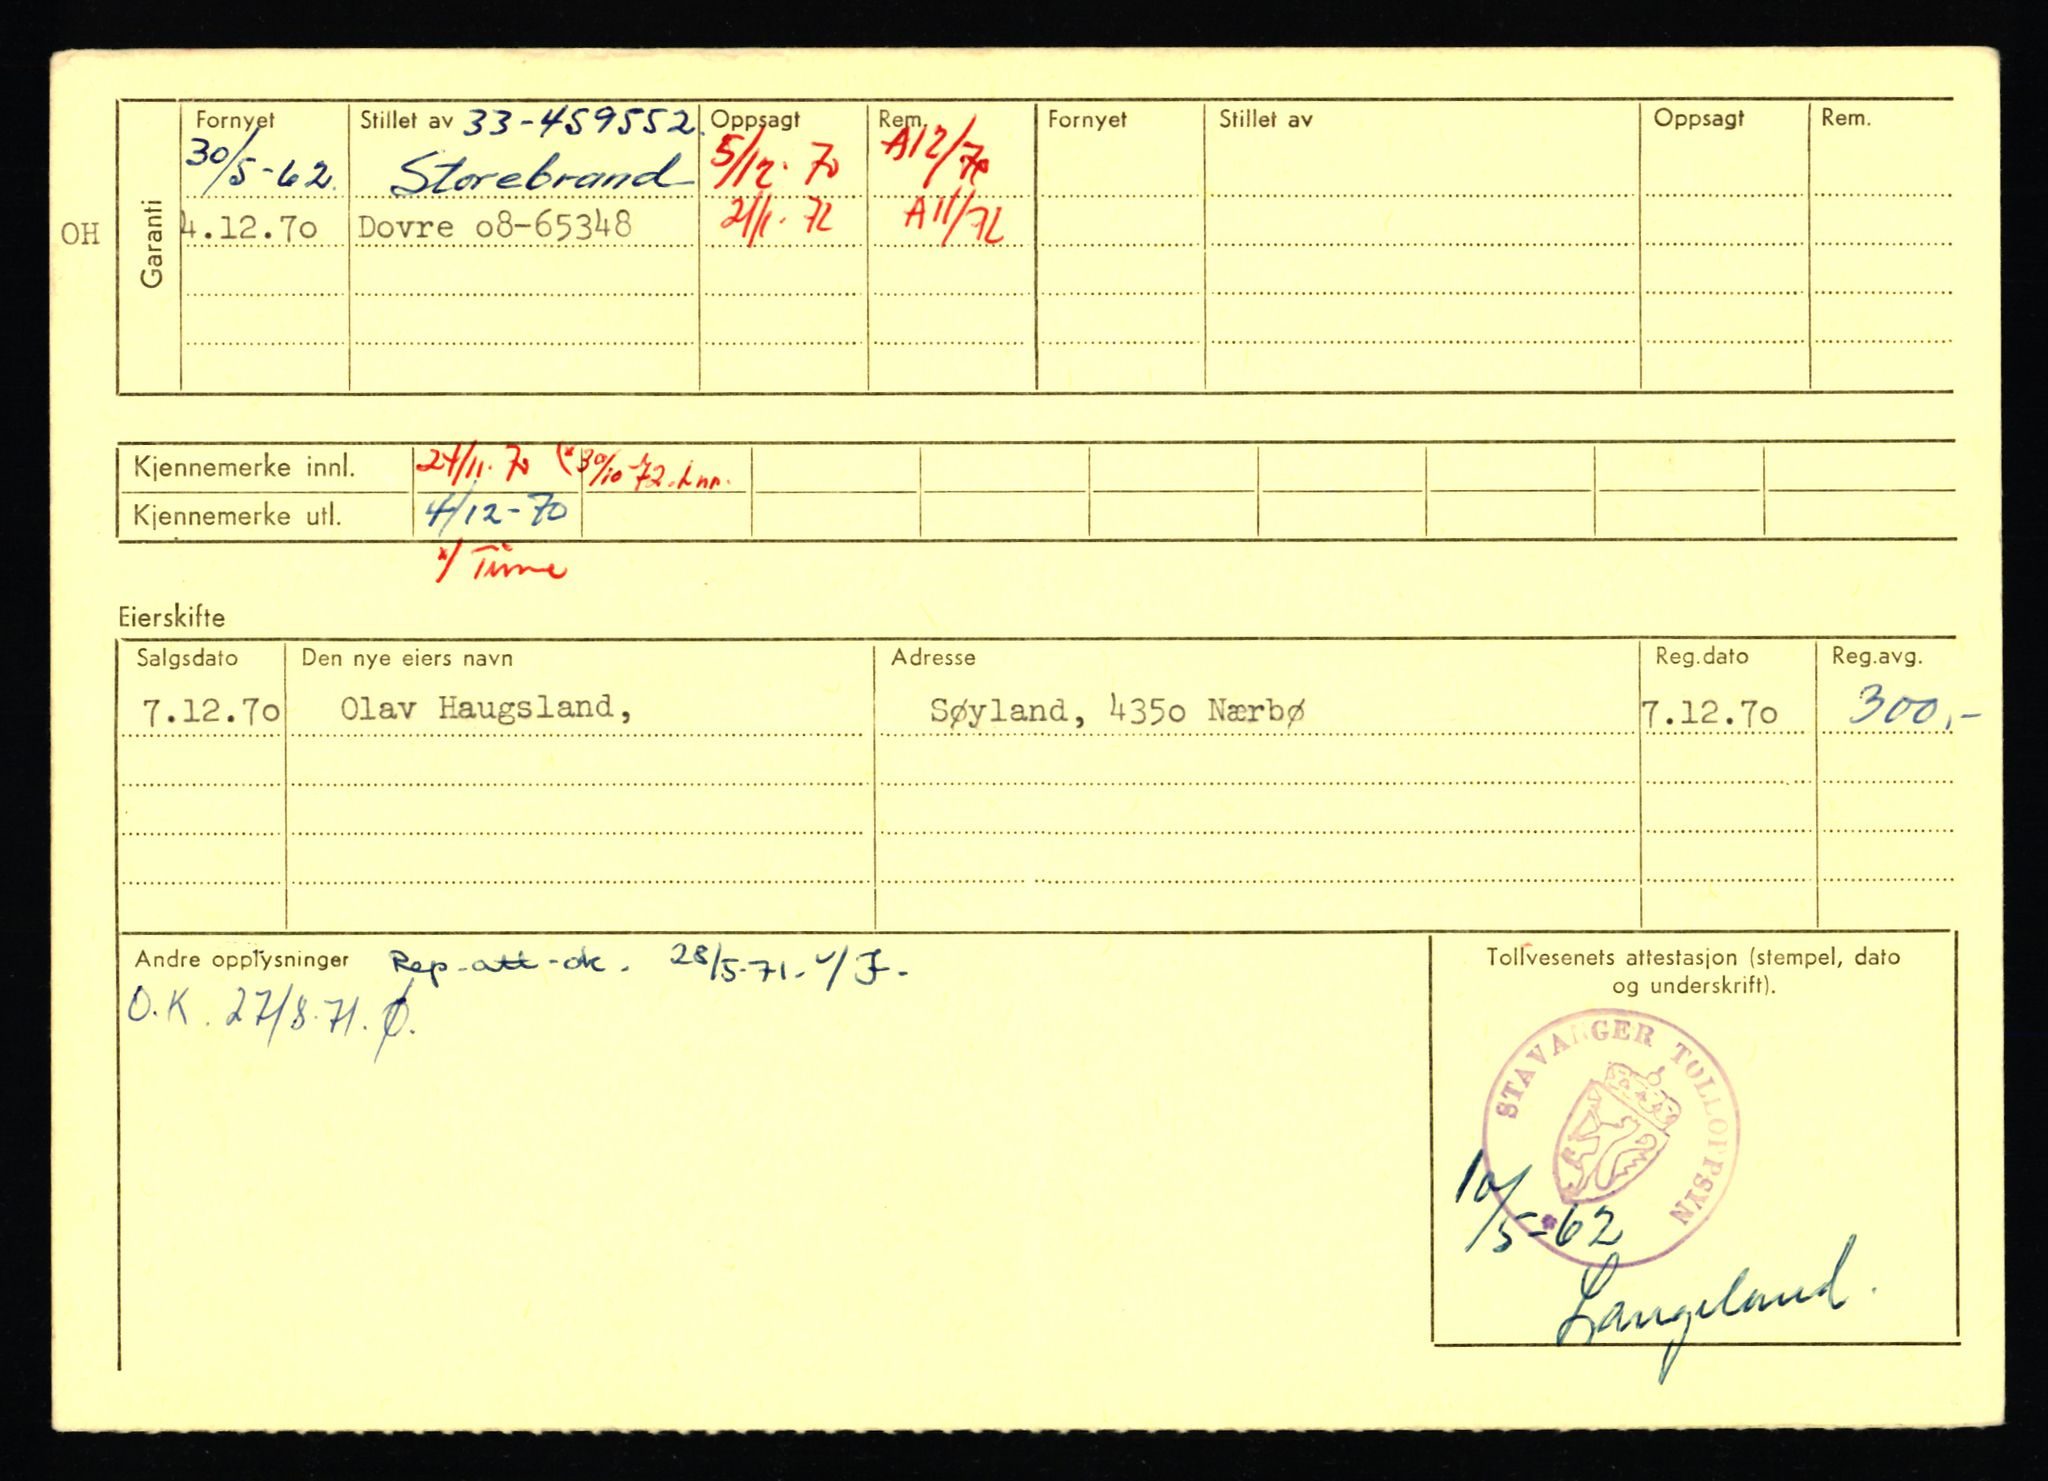 Fornyet Stillet av 33-459552. Oppsagt Rem. Fornyet Stillet av Oppsagt Rem.
30/5-62. Storebrand 5/12.70 A12/70
OH 4.12.70 Dovre o8-65348 21/1.72 A11/72
Garanti
Kjennemerke innl. 24/11.70 (* 30/10-72.
Kjennemerke utl. 4/12-70
*/ Time
Eierskifte
Salgsdato Den nye eiers navn Adresse Reg.dato Reg.avg.
7.12.7o Olav Haugsland, Søyland, 435o Nærbø 7.12.7o 300,-
Andre opplysninger Rep-att-ok. 28/5-71.
Tollvesenets attestasjon (stempel, dato
og underskrift).
O.K. 27/8.71. Ø.
STAVANGER TOLLOPPSYN
10/5-62
Langeland.